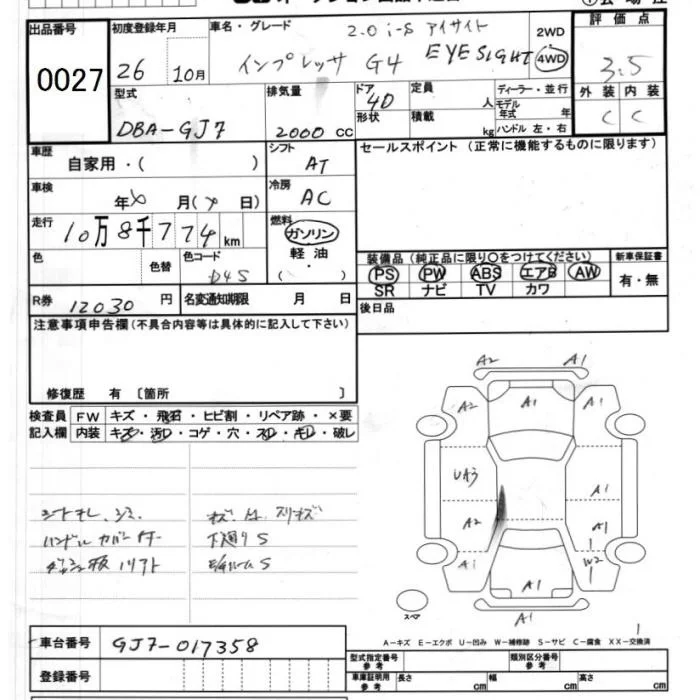 出品番号
0027
初度登録年月
26 10月
車名・グレード
2.0 i-S アイサイト
インプレッサ G4 EYESIGHT
2WD
4WD
評価点
3.5
外装 内装
C C
型式
DBA-GJ7
排気量
2000 CC
ドア 4D
形状
定員 人
積載 kg
ディーラー・並行
モデル年式 年
ハンドル 左・右
車歴
自家用・( )
シフト
AT
セールスポイント (正常に機能するものに限ります)
車検
年 月( 日)
冷房
AC
走行
10万8千774km
燃料
ガソリン
軽油
( ・ )
色
色替
色コード
D4S
装備品 (純正品に限り○をつけてください)
新車保証書
PS PW ABS エアB AW
SR ナビ TV カワ
有・無
R券 12030 円
名変通知期限 月 日
後日品
注意事項申告欄(不具合内容等は具体的に記入して下さい)
修復歴 有 〔箇所 〕
検査員
記入欄
FW キズ・飛石・ヒビ割・リペア跡・×要
内装 キズ・汚レ・コゲ・穴・スレ・キレ・破レ
シートキレ、シミ
キズ・凹 スリキズ
ハンドル カバー
下廻り S
S
A2 A1
A2 A1 A1
UA3
A1
A2 A1
A1 W2
A1
A1
スペア
1
A-キズ E-エクボ U-凹み W-補修跡 S-サビ C-腐食 XX-交換済
車台番号 GJ7-017358
登録番号
型式指定番号
参考
類別区分番号
参考
車庫証明用
参考
長さ cm
幅 cm
高さ cm